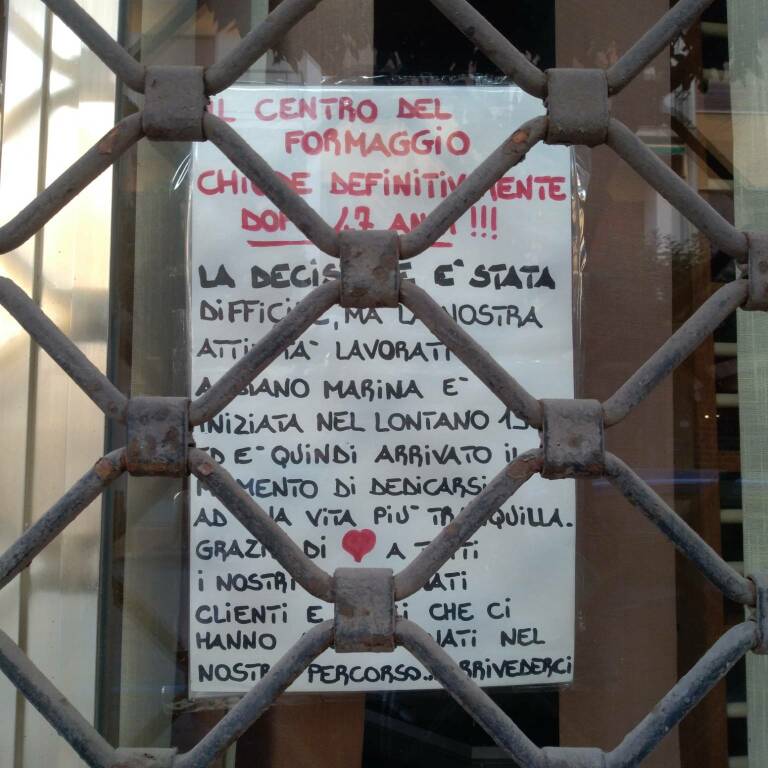 IL CENTRO DEL
FORMAGGIO
CHIUDE DEFINITIVAMENTE
DOPO 47 ANNI !!!
LA DECISIONE E' STATA
DIFFICILE, MA LA NOSTRA
ATTIVITA' LAVORATIVA
MARINA E'
INIZIATA NEL LONTANO
ED E' QUINDI ARRIVATO IL
MOMENTO DI DEDICARSI
AD UNA VITA PIU' TRANQUILLA.
GRAZIE DI ❤ A TUTTI
I NOSTRI
CLIENTI E CHE CI
HANNO NEL
NOSTRO PERCORSO... ARRIVEDERCI